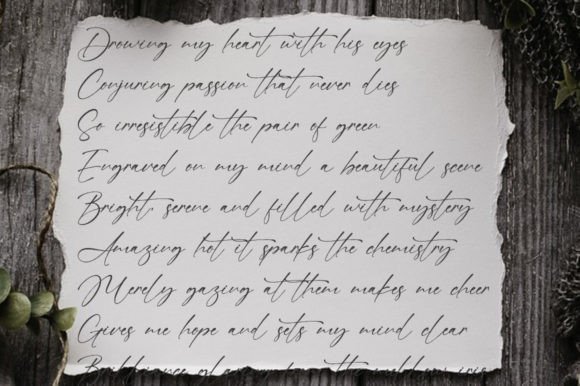 Drowing my heart with his eyes
Conjuring passion that never dies
So irresistible the pair of green
Engraved on my mind a beautiful scene
Bright, serene and filled with mystery
Amazing hot it sparks the chemistry
Merely gazing at them makes me cheer
Gives me hope and sets my mind clear
the iris